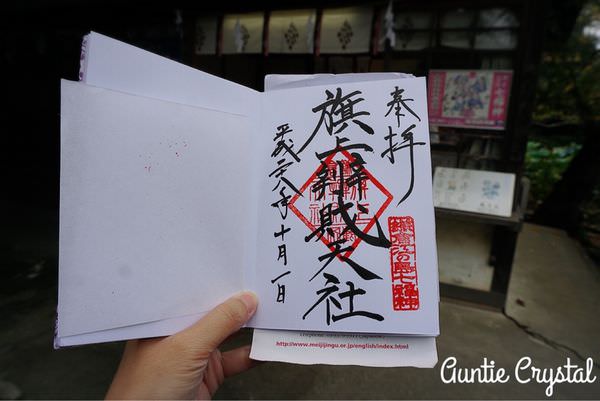 奉拝
旗上辨財天社
平成二十八年十月一日
鎌倉江の島七福神
http://www.meijijingu.or.jp/english/index.html
Auntie Crystal